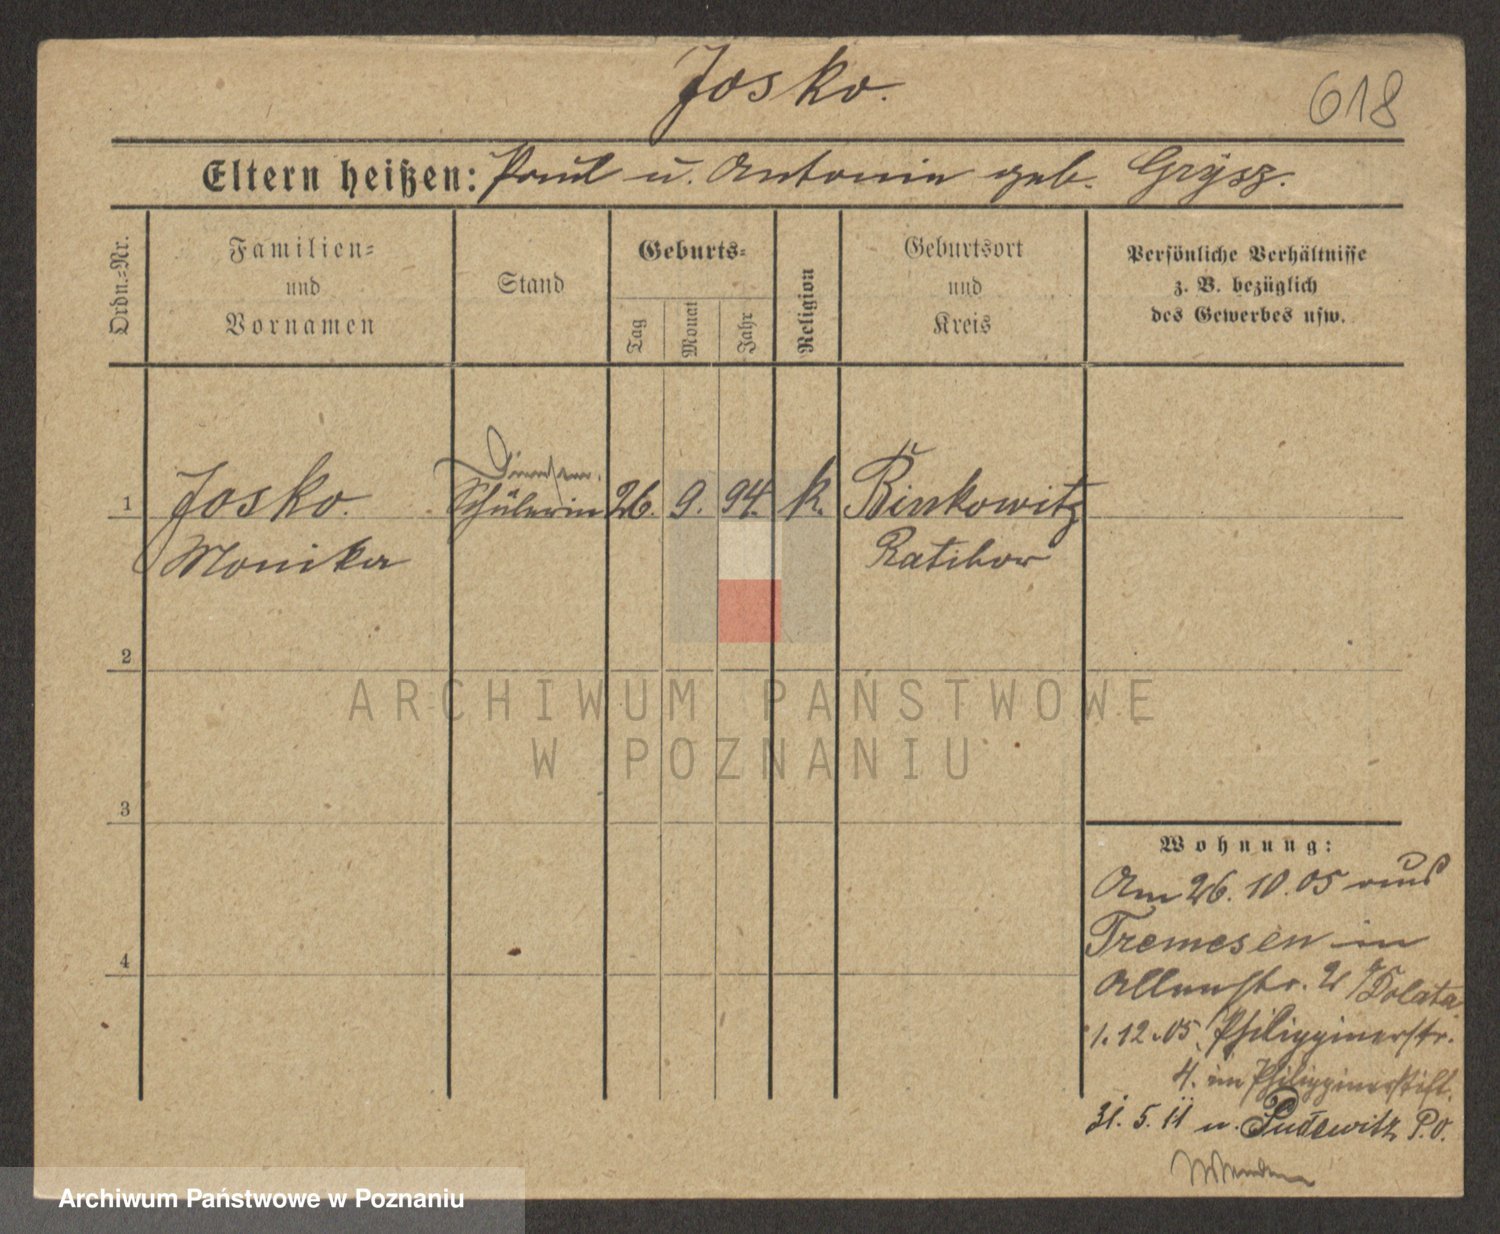 Josko.
618
Eltern heißen: Paul u. Antonie geb. Grysz.
Ordn.-Nr.
Familien-
und
Vornamen
Stand
Geburts-
Tag
Monat
Jahr
Religion
Geburtsort
und
Kreis
Persönliche Verhältnisse
z. B. bezüglich
des Gewerbes usw.
1 Josko. Schülerin 26. 9. 94. k. Binkowitz
Monika Ratibor
2
ARCHIWUM PAŃSTWOWE
W POZNANIU
3
Wohnung:
Am 26. 10. 05 aus
Tremesen in
4
Allerstr. 2 Dolata
1. 12. 05. Philippinerstr.
4. im Philippinerstift.
31. 5. 11 n. Pudewitz P.O.
Archiwum Państwowe w Poznaniu